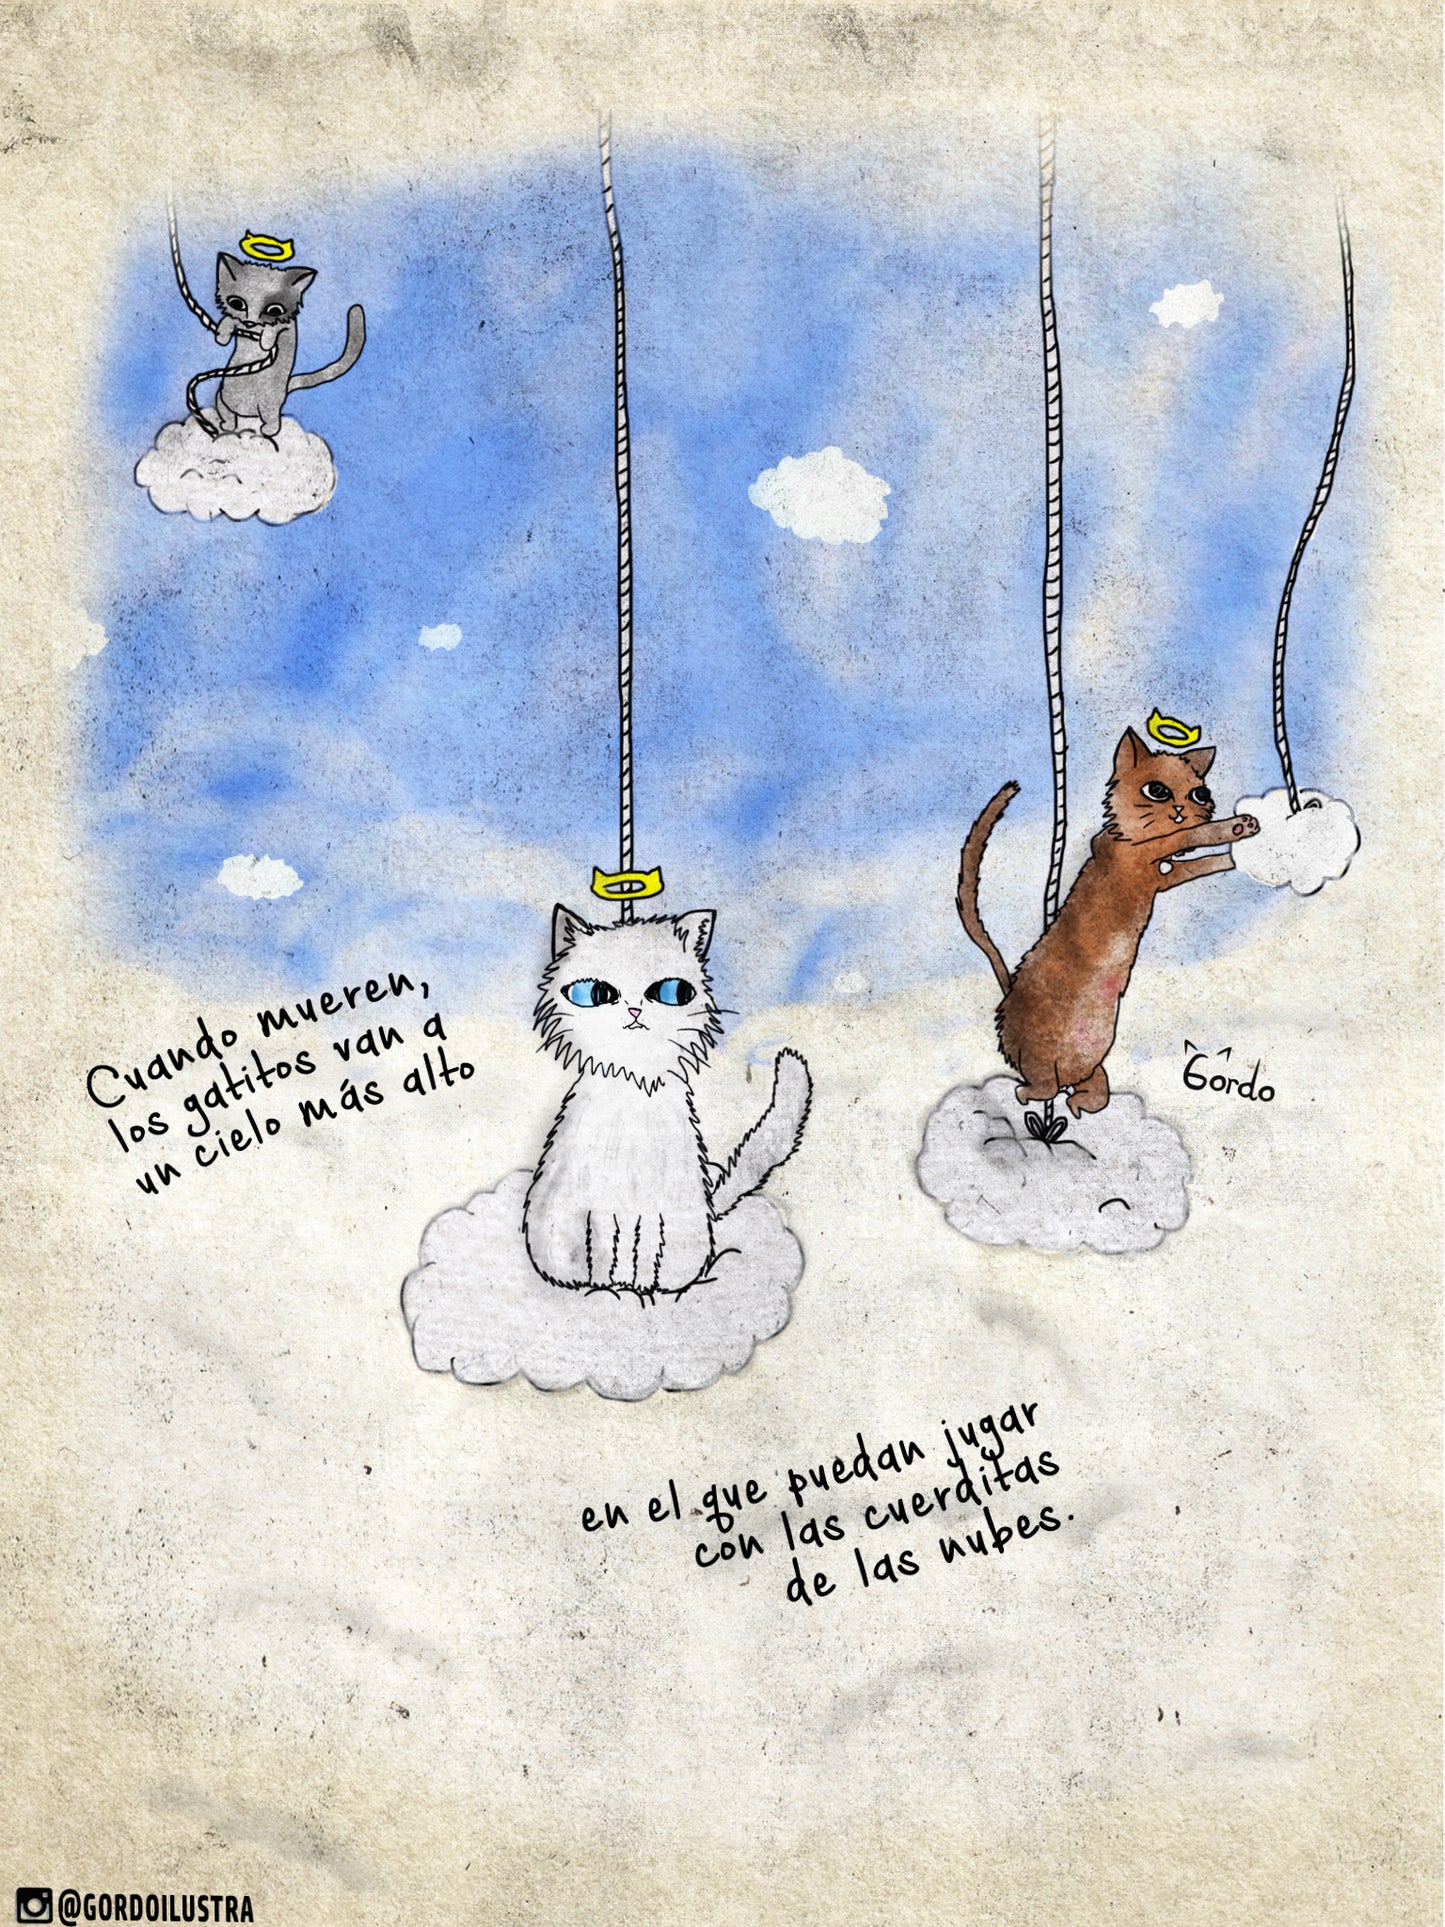 Cuando mueren,
los gatitos van a
un cielo más alto
Gordo
en el que puedan jugar
con las cuerditas
de las nubes.
@GORDOILUSTRA